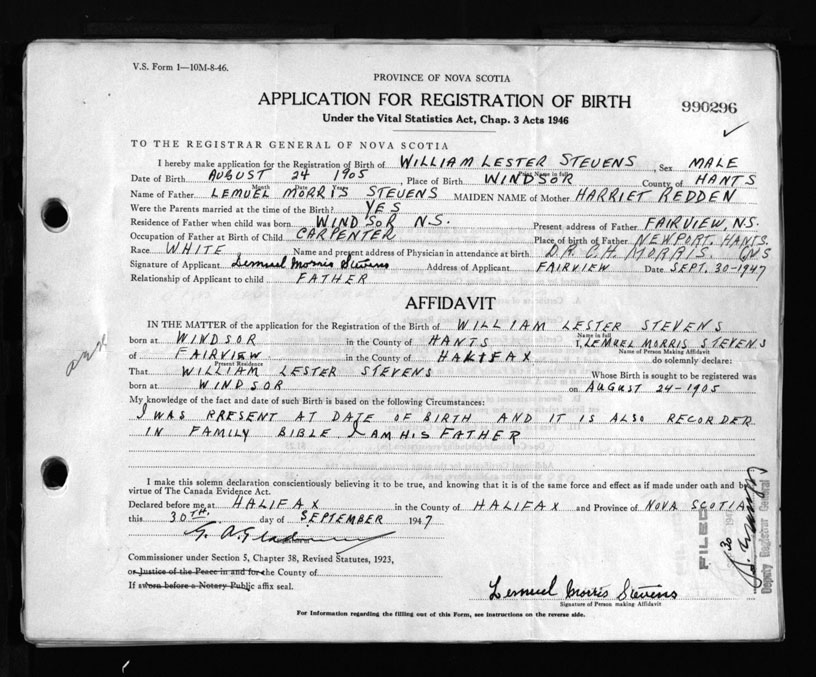 V.S. Form 1—10M-8-46.
PROVINCE OF NOVA SCOTIA
APPLICATION FOR REGISTRATION OF BIRTH
990296
Under the Vital Statistics Act, Chap. 3 Acts 1946
TO THE REGISTRAR GENERAL OF NOVA SCOTIA
I hereby make application for the Registration of Birth of WILLIAM LESTER STEVENS, Sex MALE
Print Name in full
Date of Birth AUGUST 24 1905 Place of Birth WINDSOR County of HANTS
Month Date Yr.
Name of Father LEMUEL MORRIS STEVENS MAIDEN NAME of Mother HARRIET REDDEN
Were the Parents married at the time of the Birth? YES
Residence of Father when child was born WINDSOR N.S. Present address of Father FAIRVIEW, N.S.
Occupation of Father at Birth of Child CARPENTER Place of birth of Father NEWPORT, HANTS.
Race WHITE Name and present address of Physician in attendance at birth DR. C.H. MORRIS.
Signature of Applicant Lemuel Morris Stevens Address of Applicant FAIRVIEW Date SEPT. 30-1947
Relationship of Applicant to child FATHER
AFFIDAVIT
IN THE MATTER of the application for the Registration of the Birth of WILLIAM LESTER STEVENS
Name in full
born at WINDSOR in the County of HANTS I, LEMUEL MORRIS STEVENS
Name of Person Making Affidavit
of FAIRVIEW in the County of HALIFAX do solemnly declare:
Present Residence
That WILLIAM LESTER STEVENS Whose Birth is sought to be registered was
born at WINDSOR on AUGUST 24-1905
My knowledge of the fact and date of such Birth is based on the following Circumstances:
I WAS PRESENT AT DATE OF BIRTH AND IT IS ALSO RECORDER
IN FAMILY BIBLE I AM HIS FATHER
I make this solemn declaration conscientiously believing it to be true, and knowing that it is of the same force and effect as if made under oath and by
virtue of The Canada Evidence Act.
Declared before me at HALIFAX in the County of HALIFAX and Province of NOVA SCOTIA
this 30TH. day of SEPTEMBER 1947
Commissioner under Section 5, Chapter 38, Revised Statutes, 1923,
or Justice of the Peace in and for the County of
If sworn before a Notary Public affix seal.
Lemuel Morris Stevens
Signature of Person making Affidavit
For Information regarding the filling out of this Form, see instructions on the reverse side.
FILED
Deputy Registrar General